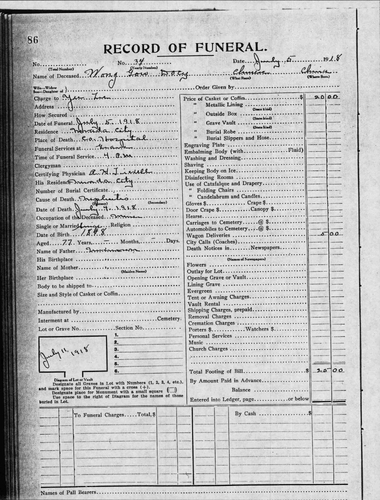 86
RECORD OF FUNERAL.
No. No. 34 Date July 5 1918
(Total Number) (Yearly Number)
Name of Deceased Wong China
(What Nation) (Where Born)
Wife—Widow
Son—Daughter of Order Given by
Charge to Yee
Address
How Secured
Date of Funeral July 5, 1918
Residence Nevada City
Place of Death Co. Hospital
Funeral Services at
Time of Service 4 P.M.
Clergyman
Certifying Physician
His Residence Nevada City
Number of Burial Certificate
Cause of Death Nephritis
Date of Death July 1918
Occupation of the Deceased Miner
Single or Married Single Religion
Date of Birth 1848
Aged Years, Months, Days.
Name of Father Unknown
His Birthplace
Name of Mother
(Maiden Name)
Her Birthplace
Body to be shipped to
Size and Style of Casket or Coffin
Manufactured by
Interment at Cemetery
Lot or Grave No. Section No.
1.
2.
3.
4.
5.
6.
July 11, 1918
Diagram of Lot or Vault
Designate all Graves in Lot with Numbers (1, 2, 3, 4, etc.), and mark space for this Funeral with a cross (+).
Designate place for Monument with a small square
Use space to the right of Diagram for the names of those interred in Lot.
Price of Casket or Coffin $ 20 00
" Metallic Lining
" Outside Box
(State Kind)
" Grave Vault
(State Kind)
" Burial Robe
(State Kind)
" Burial Slippers and Hose
Engraving Plate
Embalming Body (with Fluid)
Washing and Dressing
Shaving
Keeping Body on Ice
Disinfecting Rooms
Use of Catafalque and Drapery
" Folding Chairs
" Candelabrum and Candles
Gloves $ Crape $
Door Crape $ Canopy $
Hearse
Carriages to Cemetery @ $
Automobiles to Cemetery @ $
Wagon Deliveries 5 00
City Calls (Coaches)
Death Notices in Newspapers
(Names of Newspapers)
Flowers
Outlay for Lot
Opening Grave or Vault
Lining Grave
Evergreen
Tent or Awning Charges
Vault Rental
Shipping Charges, prepaid
Removal Charges
Cremation Charges
Porters $ Watchers $
Personal Services
Music
Church Charges
Total Footing of Bill $ 25 00
By Amount Paid in Advance
Balance
Entered into Ledger, page or below $
To Funeral Charges Total, $ By Cash $
Names of Pall Bearers